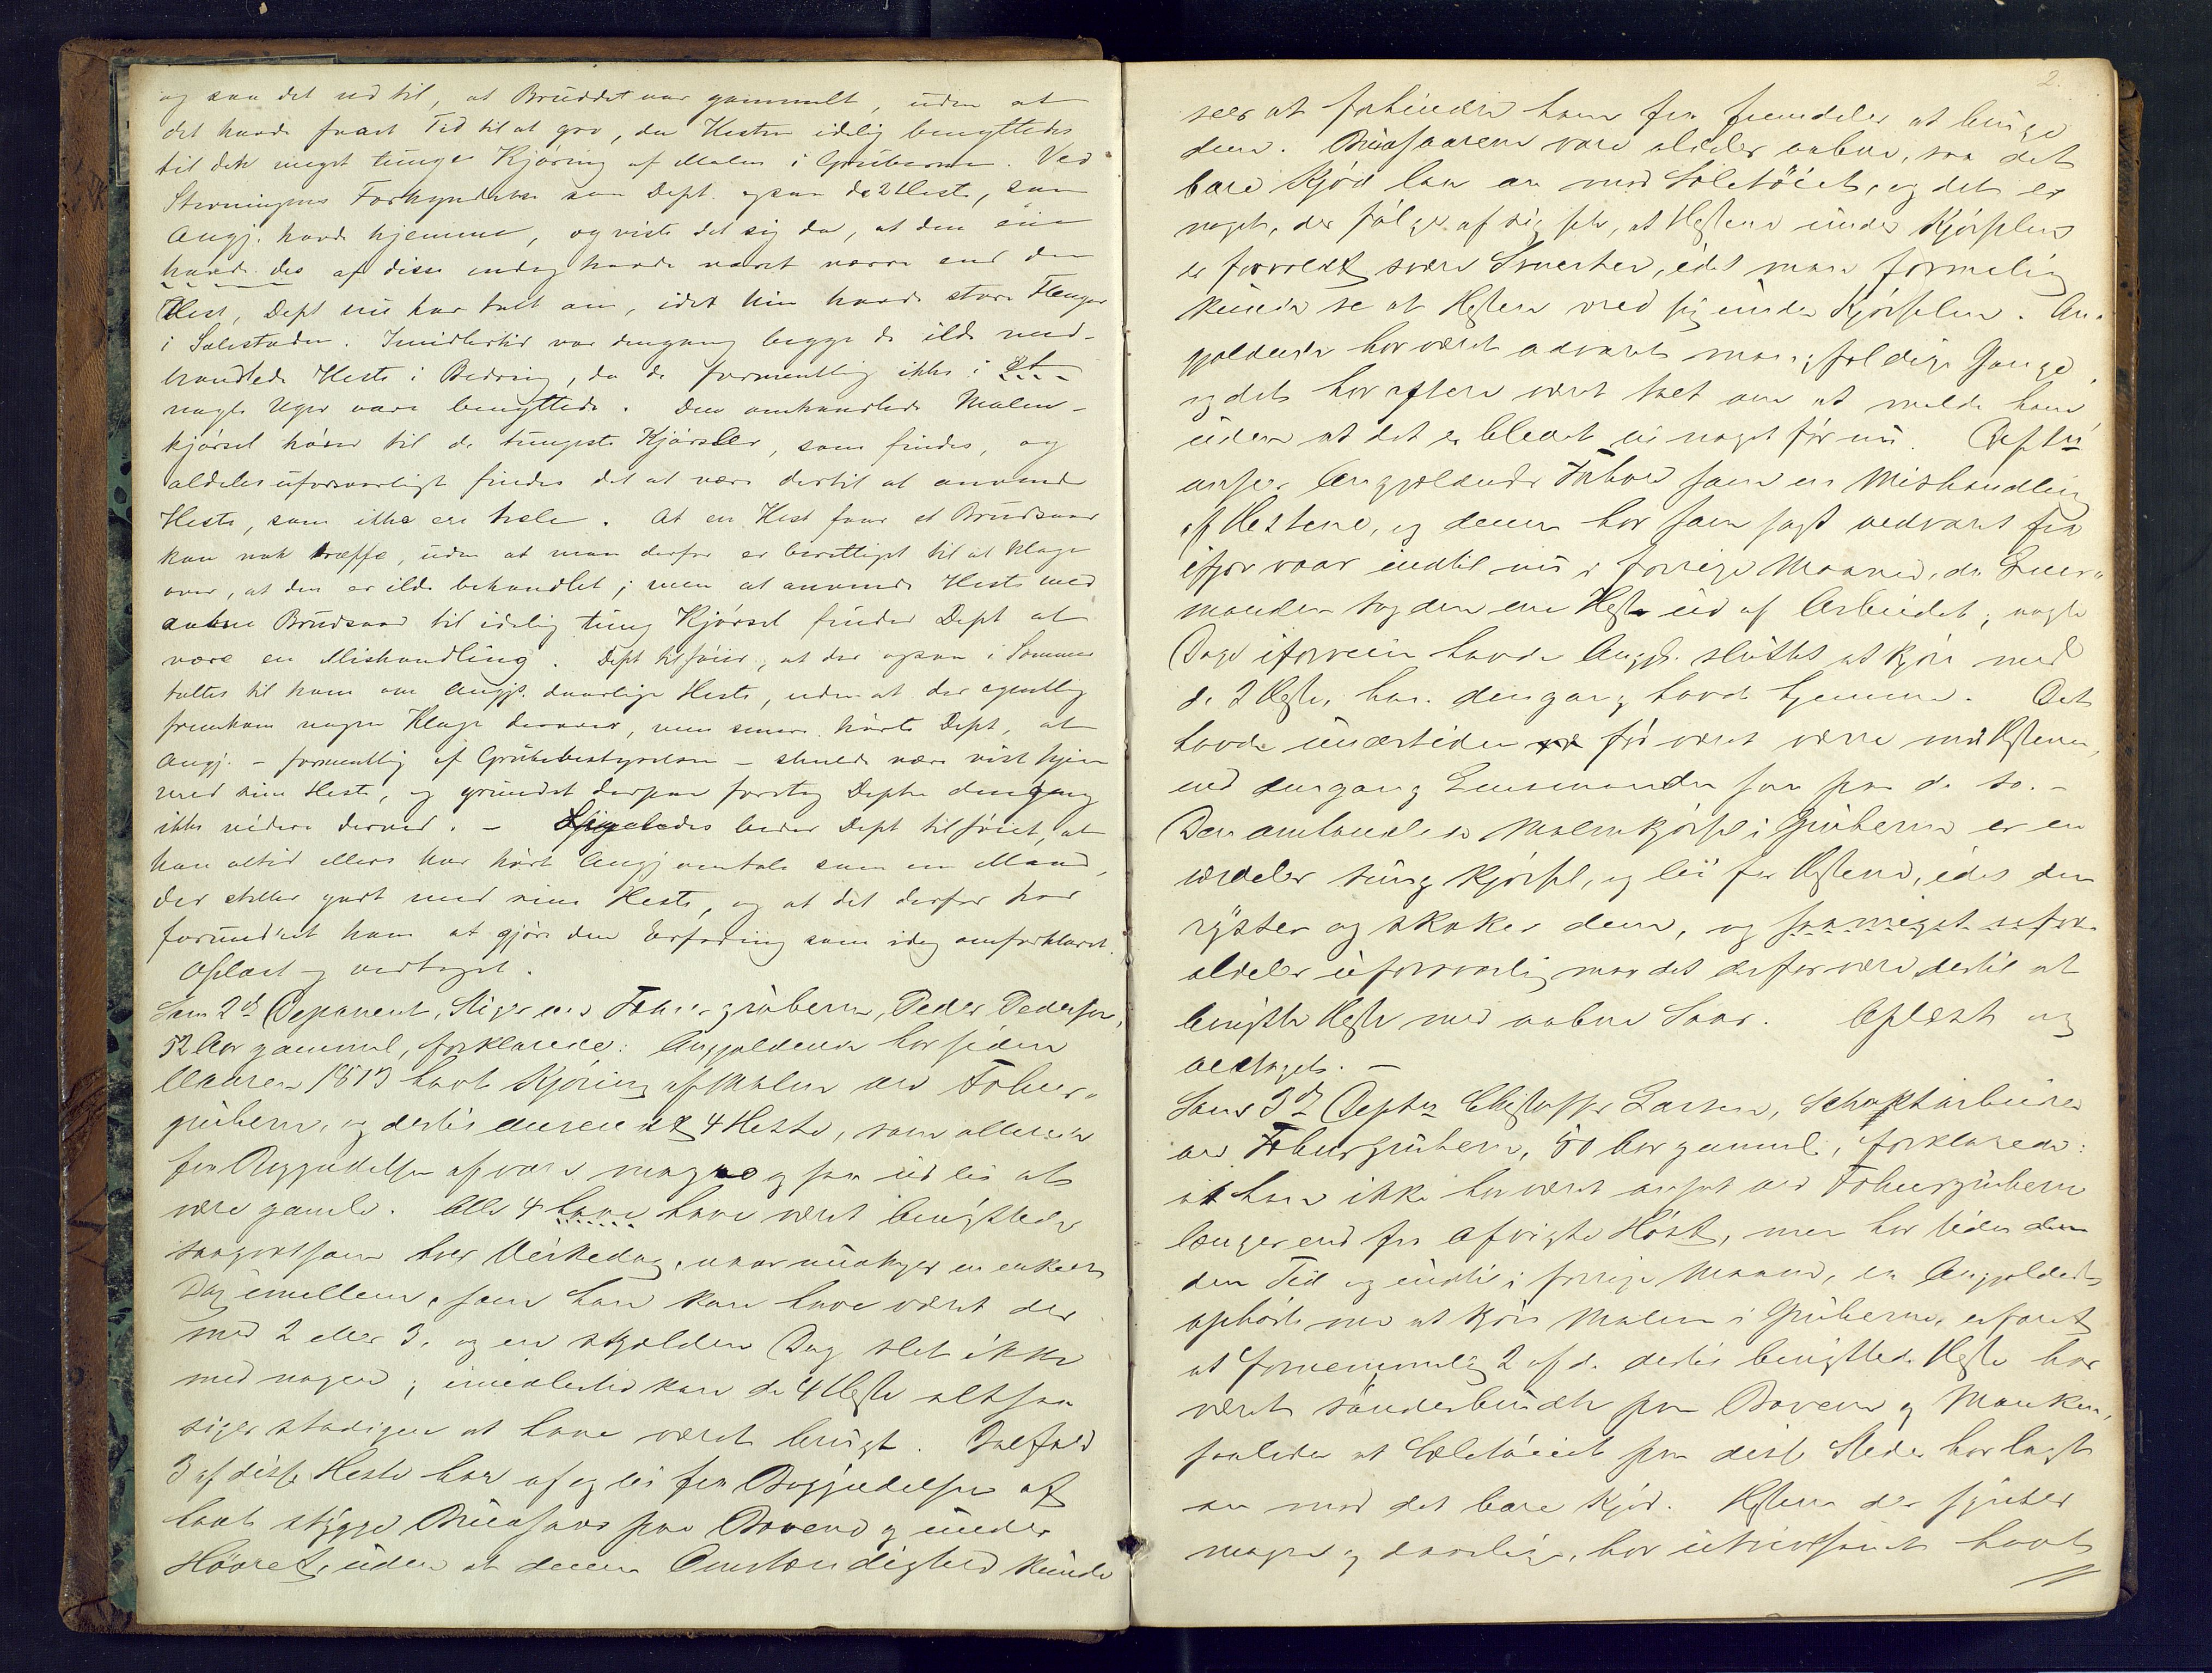 og saa det ud til, at Bruddet var gammelt, uden at
det havde faaet Tid til at gro, da Hesten idelig benyttedes
til den meget tunge Kjøring af Malm i Gruberne. Ved
Stevningens Forkyndelse saa Dept. ogsaa de 2 Heste, som
Angj. havde hjemme, og viste det sig da, at den ene
havde des af disse endog havde været værre end den
Hest, Dept nu har talt om, idet hin havde store Flenger
i Selestaden. Imidlertid var dengang begge de ilde med-
handlede Heste i Bedring, da de formentlig ikke i et
nogle Uger vare benyttede. Den omhandlede Malm-
kjørsel hører til de tungeste Kjørsler, som findes, og
aldeles uforsvarligt findes det at være dertil at anvende
Heste, som ikke ere hele. At en Hest faar et Brudsaar
kan nok træffe, uden at man derfor er berettiget til at klage
over, at den er ilde behandlet; men at anvende Heste med
aabne Brudsaar til idelig tung Kjørsel finder Dept at
være en Mishandling. Dept tilføier, at der ogsaa i Sommer
taltes til ham om Angjs. daarlige Heste, uden at der egentlig
fremkom nogen Klage derover, men senere hørte Dept, at
Angj. – formentlig af Grubebestyrelsen – skulde være vist hjem
med sine Heste, og grundet derpaa foretog Deptn dengang
ikke videre derved. – Ligeledes beder Dept tilføiet, at
han altid ellers har hørt Angj omtale som en Mand,
der steller godt med sine Heste, og at det derfor har
forundret ham at gjøre den Erfaring som idag omforklaret.
Oplæst og vedtaget.
Som 2d Deponent, Stiger ved gruberne, Peder Pedersen,
52 Aar gammel, forklarede: Angjældende har siden
havt Kjøring af Malm ved
gruberne, og dertil anvendt 4 Heste, som allerede
fra Begyndelsen af vare magre og saa ud til at
være gamle. Alle 4 have have været benyttede
saagodtsom hver Virkedag, naar undtages en enkelt
Dag imellem, som han kan have været der
med 2 eller 3, og en skjelden Dag slet ikke
med nogen; imidlertid kan de 4 Heste altsaa
siges stadigen at have været brugt. Ialfald
3 af disse Heste har af og til fra Begyndelsen af
havt stygge Brudsaar paa Bovene og under
Høvret, uden at denne Omstændighed kunde
2.
sees at forhindre ham fra fremdeles at bruge
dem. Brudsaarene vare aldeles aabne, saa det
bare Kjød laa an mod Seletøiet, og det er
noget, der følger af sig selv, at Hestene under Kjørselen
er forvoldt svære Smerter, idet man formelig
kunde se at Hesten vred sig under Kjørselen. An-
gjældende har været advaret mangfoldige Gange,
og det har oftere været talt om at melde ham
uden at det er blevet til noget før nu. Deptn
anser Angjældendes Forhold som en Mishandling
af Hestene, og denne har som sagt vedvaret fra
ifjor vaar indtil nu i forrige Maaned, da Lens-
manden tog den ene Hest ud af Arbeidet; nogle
Dage iforveien havde Angj. sluttet at kjøre med
de 2 Heste, han dengang havde hjemme. Det
havde undertiden før været værre med Hestene,
end dengang Lensmanden saa paa de to. –
Den omhandlede Malmkjørsel i Gruberne er en
særdeles tung Kjørsel, og lei for Hestene, idet den
ryster og skaker dem, og saameget mere
aldeles uforsvarlig maa det derfor være dertil at
benytte Heste med aabne Saar. Oplæst og
vedtaget. –
Som 3d Deptn Christoffer Larsen, Schaktarbeider
ved gruberne, 50 Aar gammel, forklarede:
at han ikke har været ansat ved gruberne
længer end fra afvigte Høst, men har siden den
den Tid og indtil i forrige Maaned, da Angjældende
ophørte med at kjøre Malm i Gruberne, erfaret
at fornemmelig 2 af de dertil benyttede Heste har
været sønderbrudte paa Bovene og Manken,
saaledes at Seletøiet paa disse Steder har lagt
an mod det bare Kjød. Hestene der synes
magre og daarlige, har utvivlsomt havt